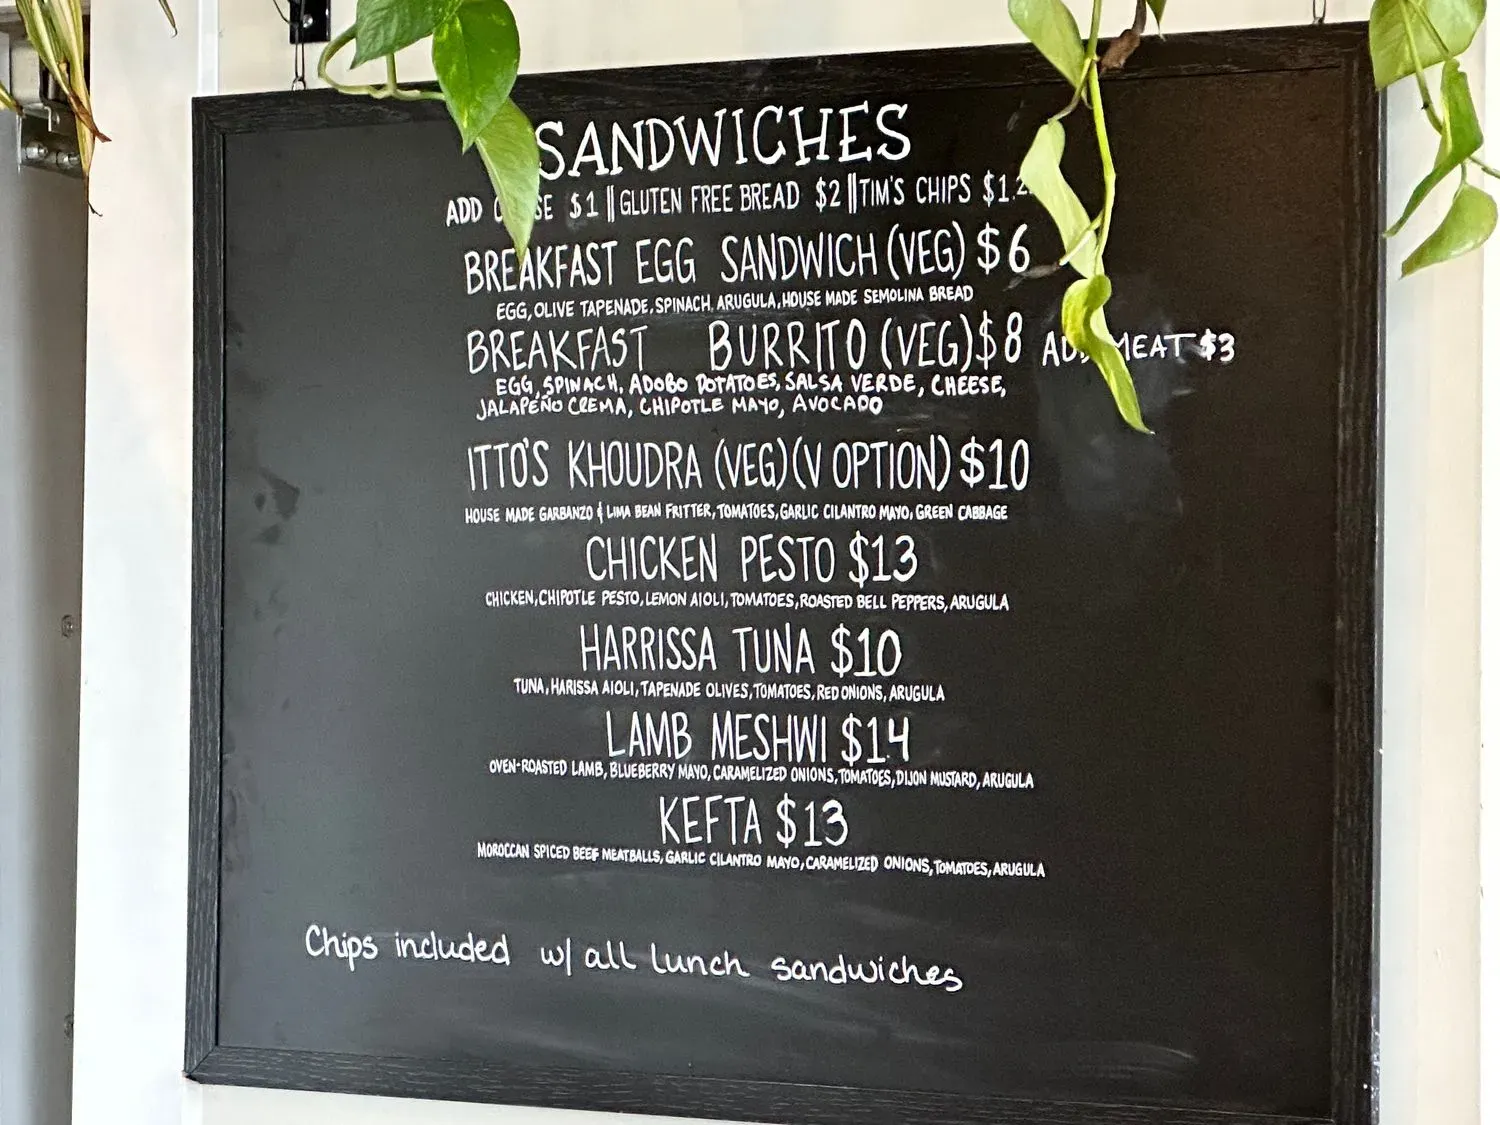 SANDWICHES
ADD $1 || GLUTEN FREE BREAD $2 || TIM'S CHIPS
BREAKFAST EGG SANDWICH (VEG) $6
EGG, OLIVE TAPENADE, SPINACH, ARUGULA, HOUSE MADE SEMOLINA BREAD
BREAKFAST BURRITO (VEG) $8 ADD MEAT $3
EGG, SPINACH, ADOBO POTATOES, SALSA VERDE, CHEESE,
JALAPEÑO CREMA, CHIPOTLE MAYO, AVOCADO
ITTO'S KHOUDRA (VEG) (V OPTION) $10
HOUSE MADE GARBANZO & LIMA BEAN FRITTER, TOMATOES, GARLIC CILANTRO MAYO, GREEN CABBAGE
CHICKEN PESTO $13
CHICKEN, CHIPOTLE PESTO, LEMON AIOLI, TOMATOES, ROASTED BELL PEPPERS, ARUGULA
HARRISSA TUNA $10
TUNA, HARISSA AIOLI, TAPENADE OLIVES, TOMATOES, RED ONIONS, ARUGULA
LAMB MESHWI $14
OVEN-ROASTED LAMB, BLUEBERRY MAYO, CARAMELIZED ONIONS, TOMATOES, DIJON MUSTARD, ARUGULA
KEFTA $13
MOROCCAN SPICED BEEF MEATBALLS, GARLIC CILANTRO MAYO, CARAMELIZED ONIONS, TOMATOES, ARUGULA
Chips included w/ all lunch sandwiches